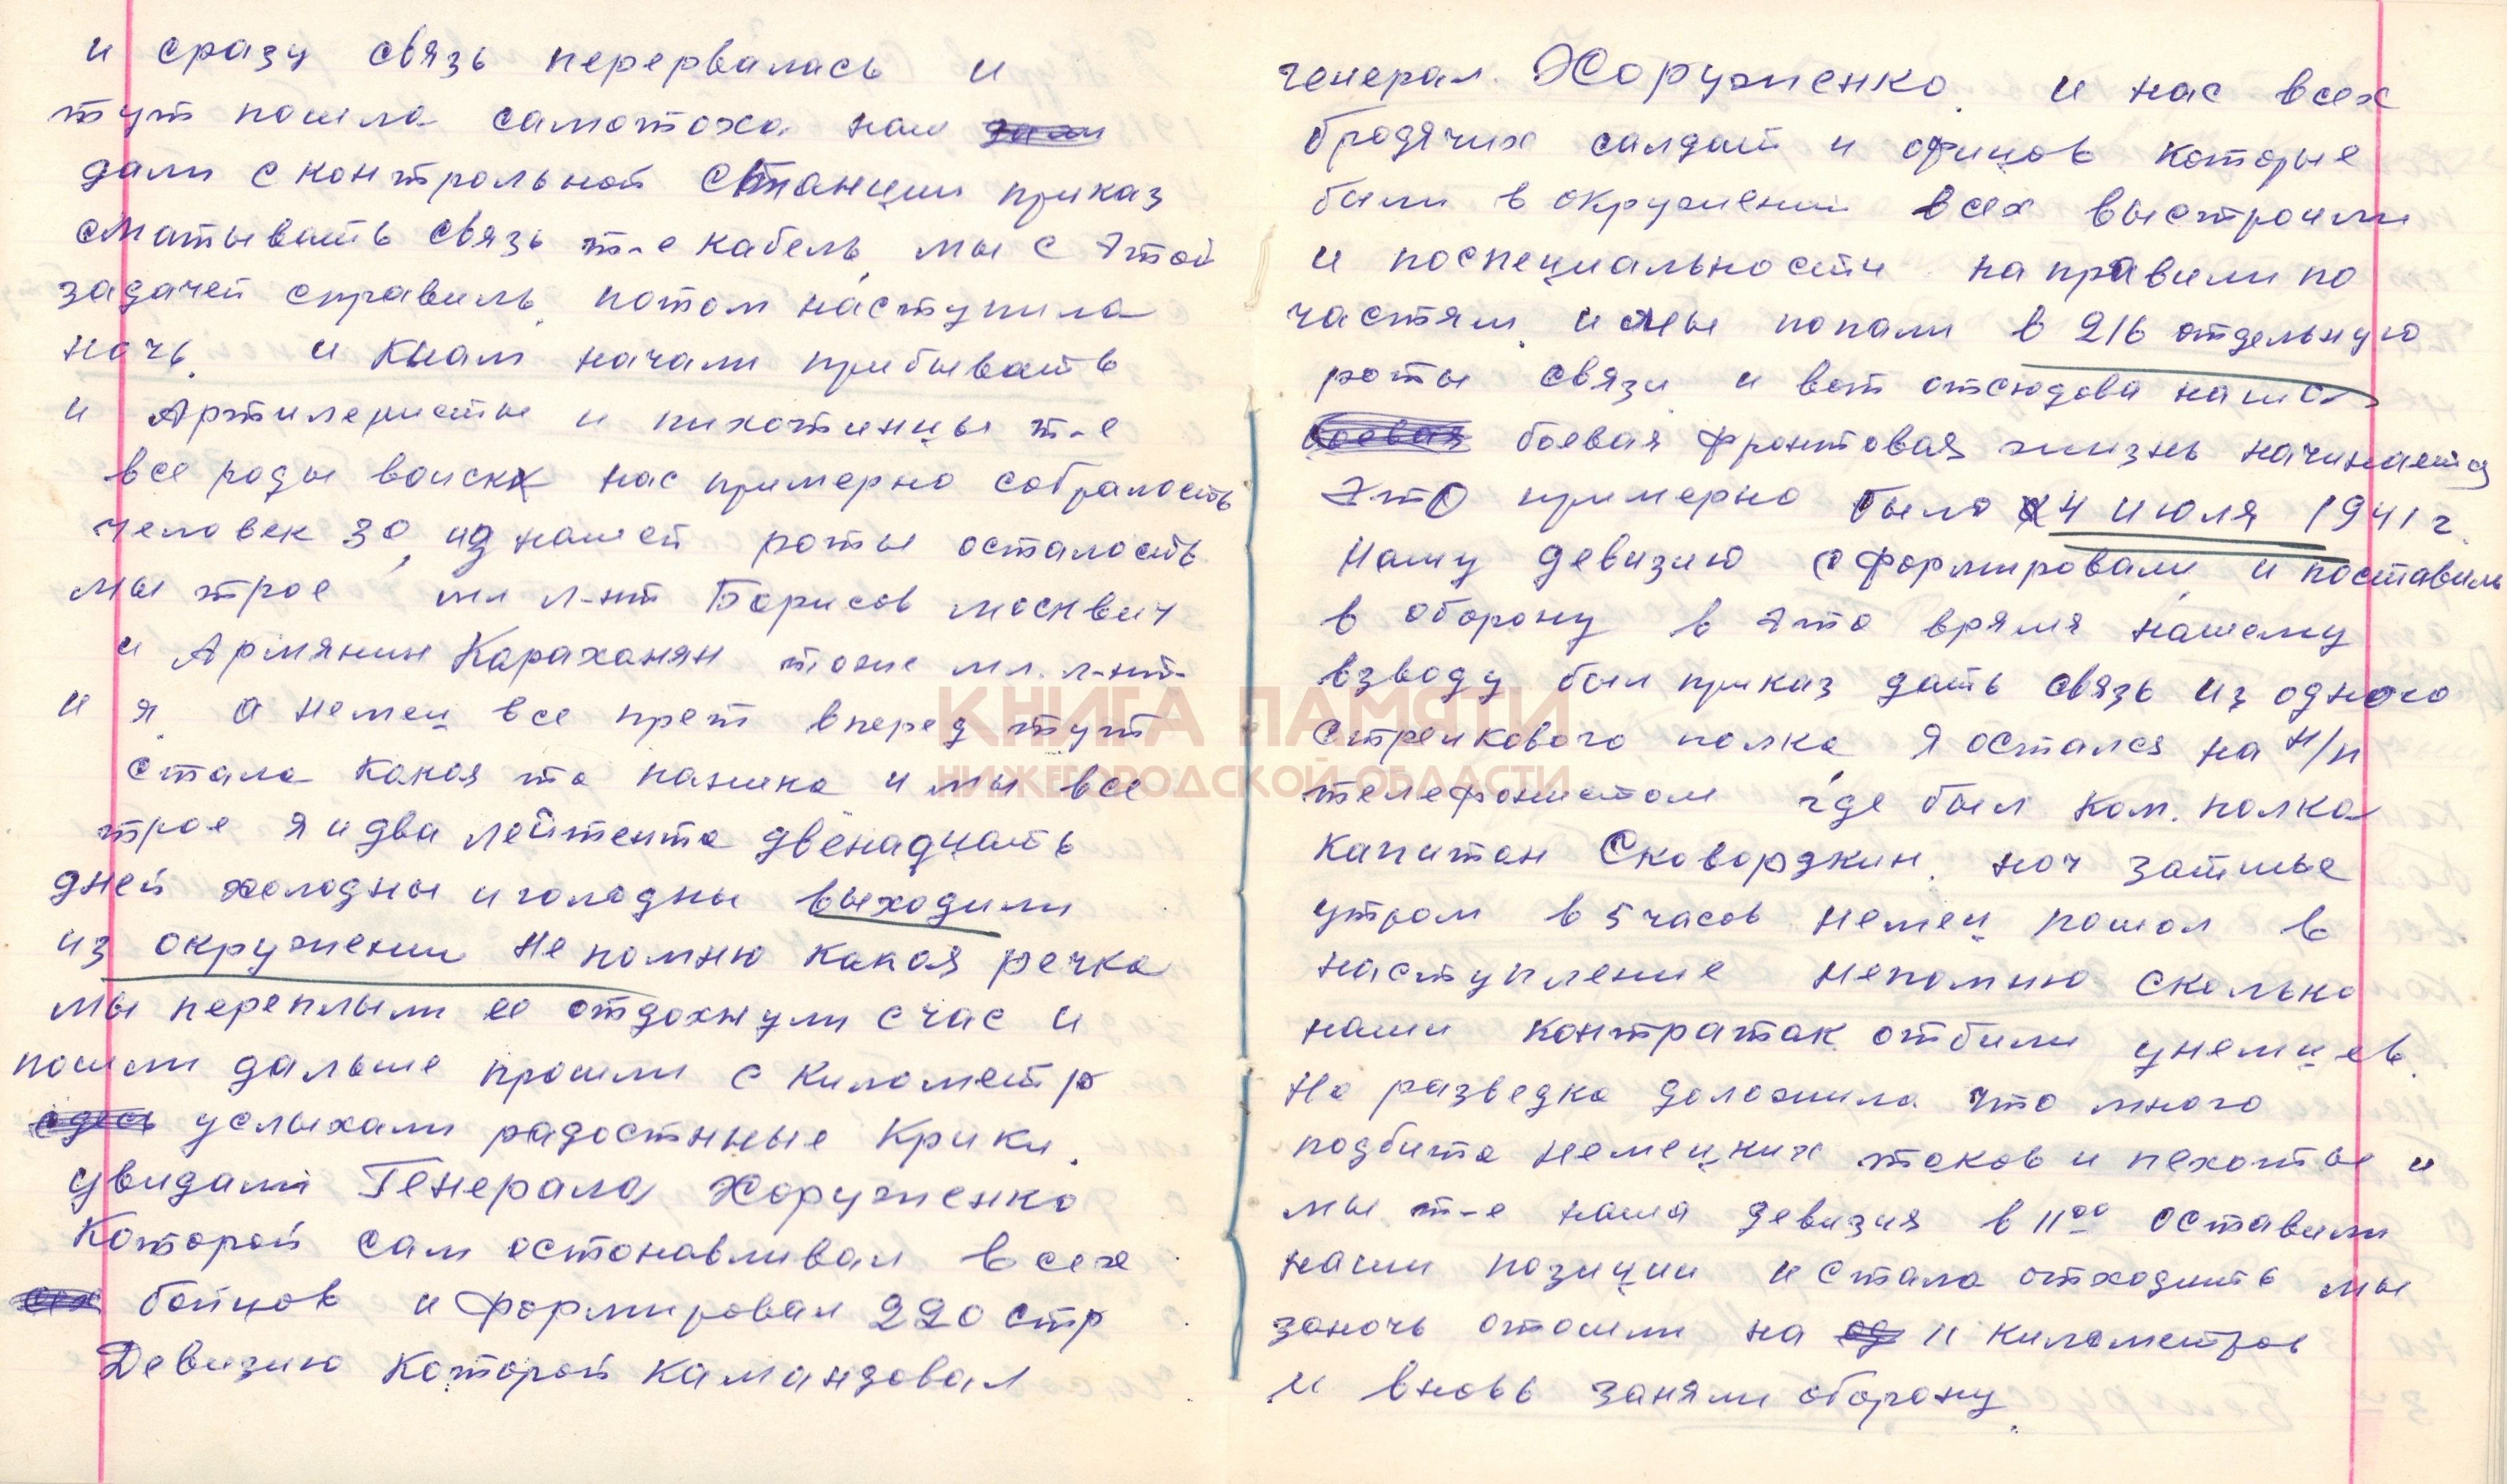 и сразу связь перервалась и
тут пошла самотоха нам дали
дали с контрольной станции приказ
сматывать связь т-е кабель, мы с этой
задачей справиль. потом наступила
ночь. и кнам начали прибывать
и Артилеристы и пихотинцы т-е
все роды войск нас примерно собралость
человек 30, из нашей роты осталость
мы трое мл л-нт Борисов москвич
и Армянин Караханян тоже мл. л-нт-
и я. а немец все прет вперед тут
стала какая та паника и мы все
трое я и два лейтента двенадцать
дней холодны и голодны выходили
из окружении не помню какая речка
мы переплыли ее отдохнули с час и
пошли дальше прошли с километр
здесь услыхали радостнные крики.
увидали Генерала Хоруженко
Которой сам остонавливал всех
бойцов и формировал 220 стр
Девизию Которой камандовал
генерал. Хоруженко. и нас всех
бродячих салдат и офицов которые
были в окружении всех выстроили
и поспециальности направили по
частям. и мы попали в 216 отдельную
роты связи и вот отсюдова наша
боевая боевая фронтовая жизнь начинается
Это примерно было 4 июля 1941 г.
Нашу девизию сформировали, и поставиль
в оборону в это врямя нашему
взводу был приказ дать связь из одного
стрелкового полка я остался на н/п
телефонистом где был ком. полка
капитан Сковордкин. ноч затишье
утром в 5 часов немец пошол в
наступление непомню сколько
наши контратак отбили унемцев.
Но разведка доложила что много
подбита немецких таков и пехоты и
мы т-е наша девизия в 11⁰⁰ оставили
наши позиции и стала отходить мы
заночь отошли на 11 километров
и вновь заняли оборону.
КНИГА ПАМЯТИ
НИЖЕГОРОДСКОЙ ОБЛАСТИ